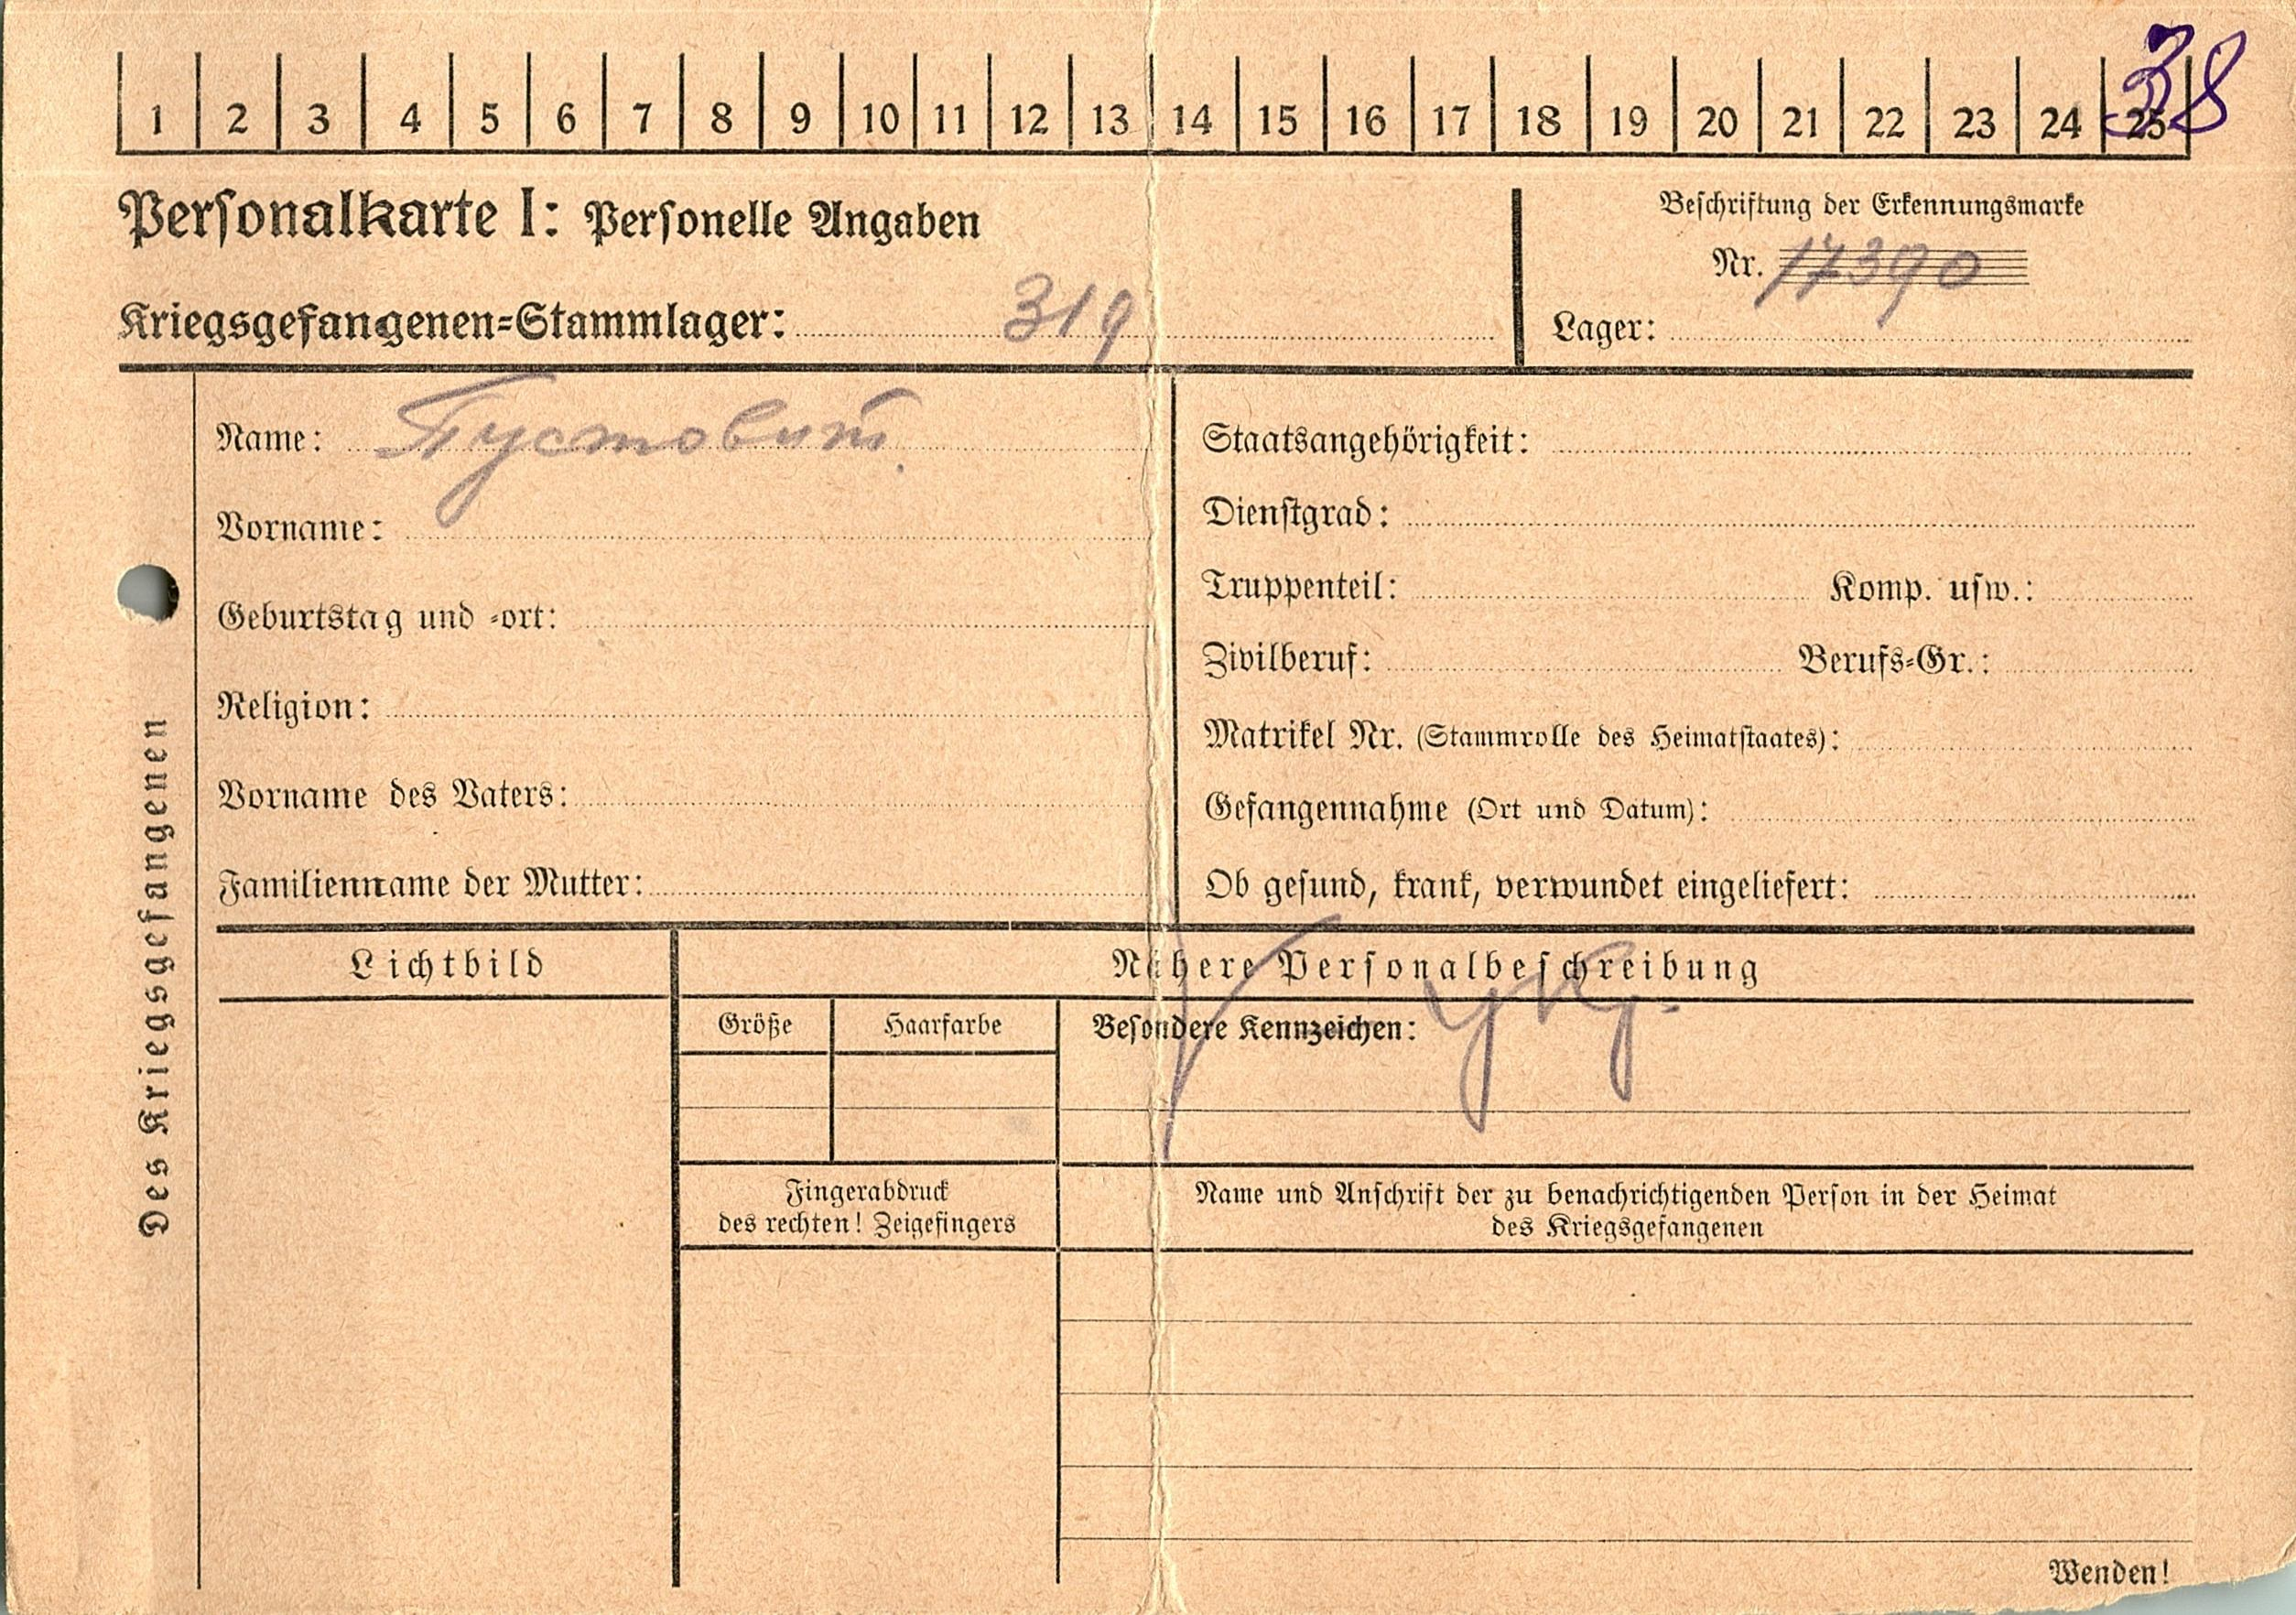 38
1 2 3 4 5 6 7 8 9 10 11 12 13 14 15 16 17 18 19 20 21 22 23 24 25
Personalkarte I: Personelle Angaben
Beschriftung der Erkennungsmarke
Nr. 17390
Kriegsgefangenen-Stammlager: 319
Lager:
Des Kriegsgefangenen
Name: Пустовит.
Vorname:
Geburtstag und -ort:
Religion:
Vorname des Vaters:
Familienname der Mutter:
Staatsangehörigkeit:
Dienstgrad:
Truppenteil: Komp. usw.:
Zivilberuf: Berufs-Gr.:
Matrikel Nr. (Stammrolle des Heimatstaates):
Gefangennahme (Ort und Datum):
Ob gesund, krank, verwundet eingeliefert:
Lichtbild
Nähere Personalbeschreibung
Größe Haarfarbe
Besondere Kennzeichen:
Fingerabdruck
des rechten! Zeigefingers
Name und Anschrift der zu benachrichtigenden Person in der Heimat
des Kriegsgefangenen
Wenden!